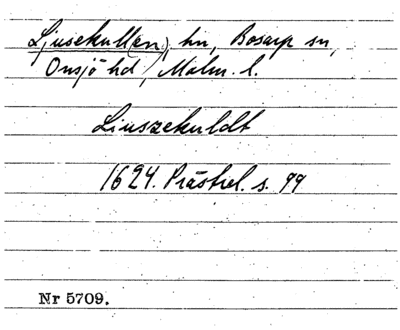 Ljusekull(en), hn, Bosarp sn,
Onsjö hd, Malm. l.
Liuszekuldt
1624. Prästrel. s. 99
Nr 5709.